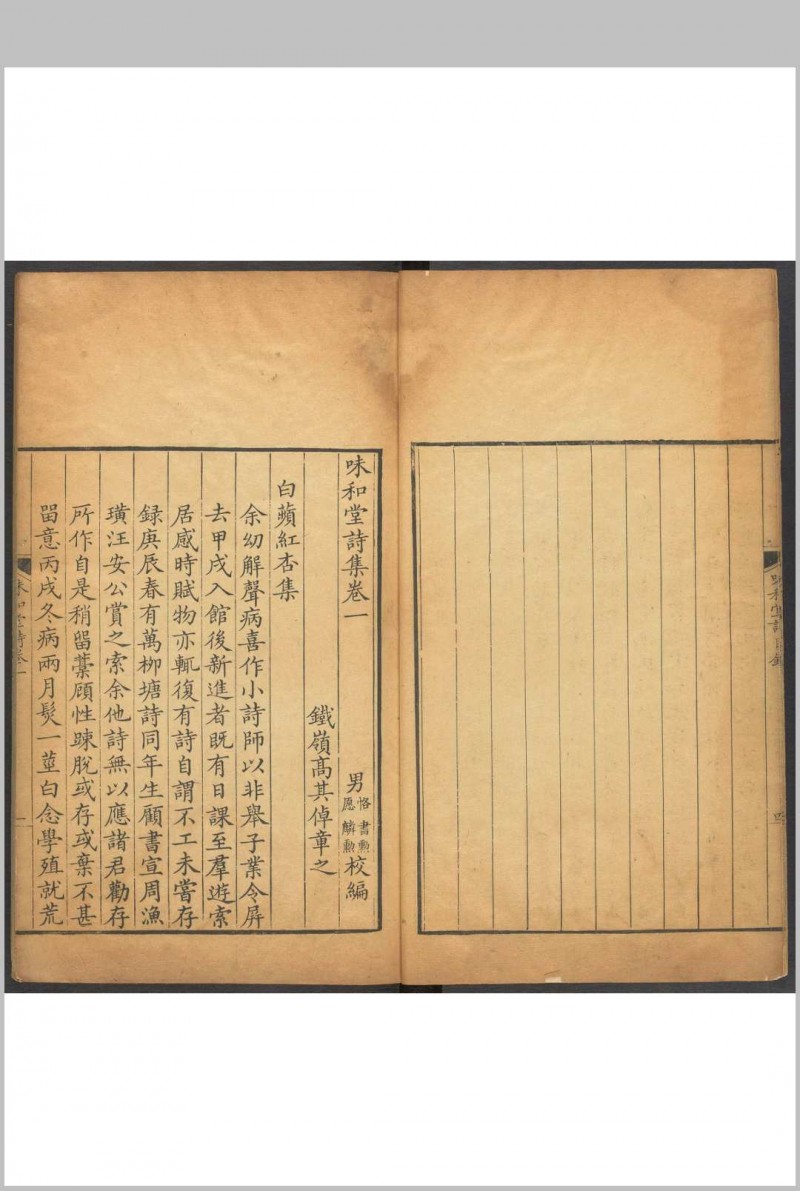 味和堂詩集卷一
男恪書勲愿麟勲校編
鐵嶺高其倬章之
白蘋紅杏集
余幼解聲病喜作小詩師以非舉子業令屏
去甲戌入館後新進者既有日課至羣遊索
居感時賦物亦輒復有詩自謂不工未嘗存
録庚辰春有萬栁塘詩同年生顧書宣周漁
璜汪安公賞之索余他詩無以應諸君勸存
所作自是稍留藁顧性踈脫或存或棄不甚
留意丙戌冬病兩月髮一莖白念學殖就荒
味和堂詩卷一
一